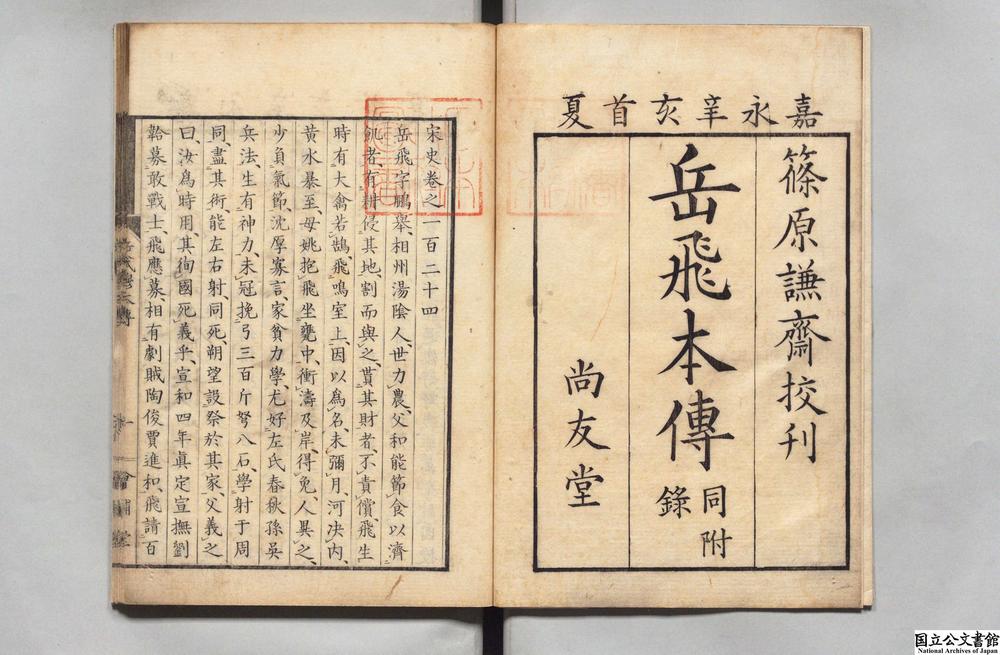 嘉永辛亥首夏
篠原謙齋挍刊
岳飛本傳
同附
錄
尚友堂
宋史卷之一百二十四
岳飛、字鵬舉、相州湯陰人、世力農、父和能節食以濟
飢者、有耕侵其地、割而與之、貰其財者、不責償、飛生
時有大禽若鵠、飛鳴室上、因以爲名、未彌月、河決内
黄水暴至、母姚抱飛坐甕中、衝濤及岸、得免、人異之、
少負氣節、沈厚寡言、家貧力學、尤好左氏春秋孫吳
兵法、生有神力、未冠挽弓三百斤弩八石、學射于周
同、盡其術、能左右射、同死、朔望設祭於其家、父義之
曰汝爲時用、其徇國死義乎、宣和四年眞定宣撫劉
韐募敢戰士、飛應募、相有劇賊陶俊賈進和、飛請百
国立公文書館
National Archives of Japan